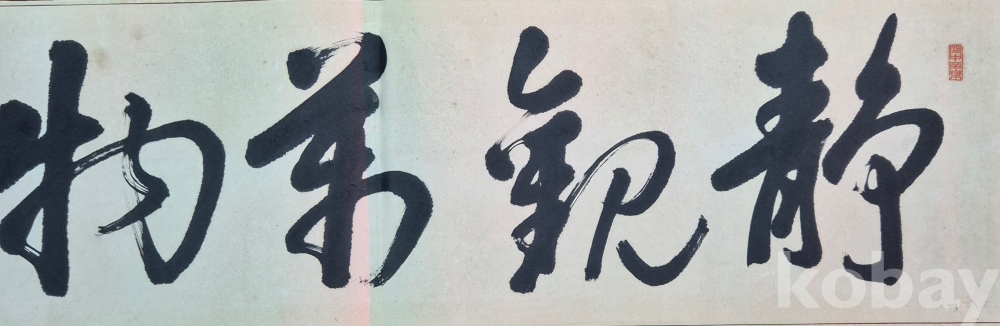 静觀萬物
kobay